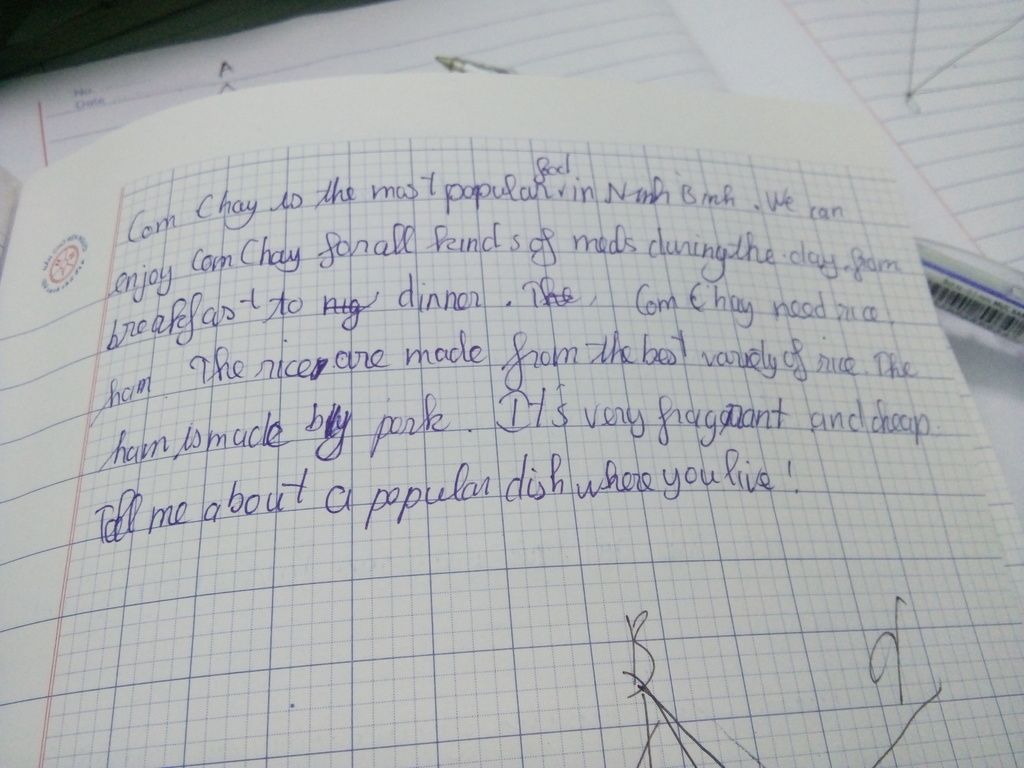 A
No.
Date
Com Chay is the most popular food in Ninh Binh. We can
enjoy Com Chay for all kinds of meals during the day from
breakfast to nig dinner. The, Com Chay need rice,
ham. The rice are made from the best variety of rice. The
ham is made by pork. It's very fragrant and cheap.
Tell me about a popular dish where you live!
B
d